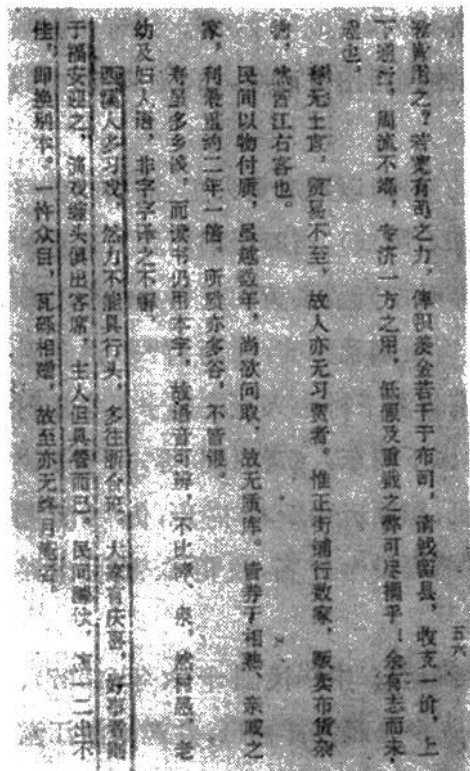 用之？若宽有司之力，俾积羡金若干于布司，请钱留县，收支一价，上
下通行，周流不端，专济一方之用，低假及重戥之弊可尽捐乎！余有志而未
逮也。
县无土宜，贸易不至，故人亦无习贾者。惟正街铺行数家，贩卖布货杂
物，然皆江右客也。
民间以物付质，虽越数年，尚欲问取，故无质库。皆券于相熟、亲戚之
家，利最重约二年一倍。所亦多谷，不皆银。
寿多乡谈，而读书仍用本字，故语音可辨，不比漳、泉，然村愚、老
幼及妇人语，非字字译之不解。
西溪人多习戏，然力不能具行头，多往浙合班。大家有庆喜，好事者则
于福安迎之，演戏缠头俱出客席，主人但具餐而已。民间醵饮，演一二出不
佳，即换别本。一忤众目，瓦砾相赠，故至亦无终日者。
五六